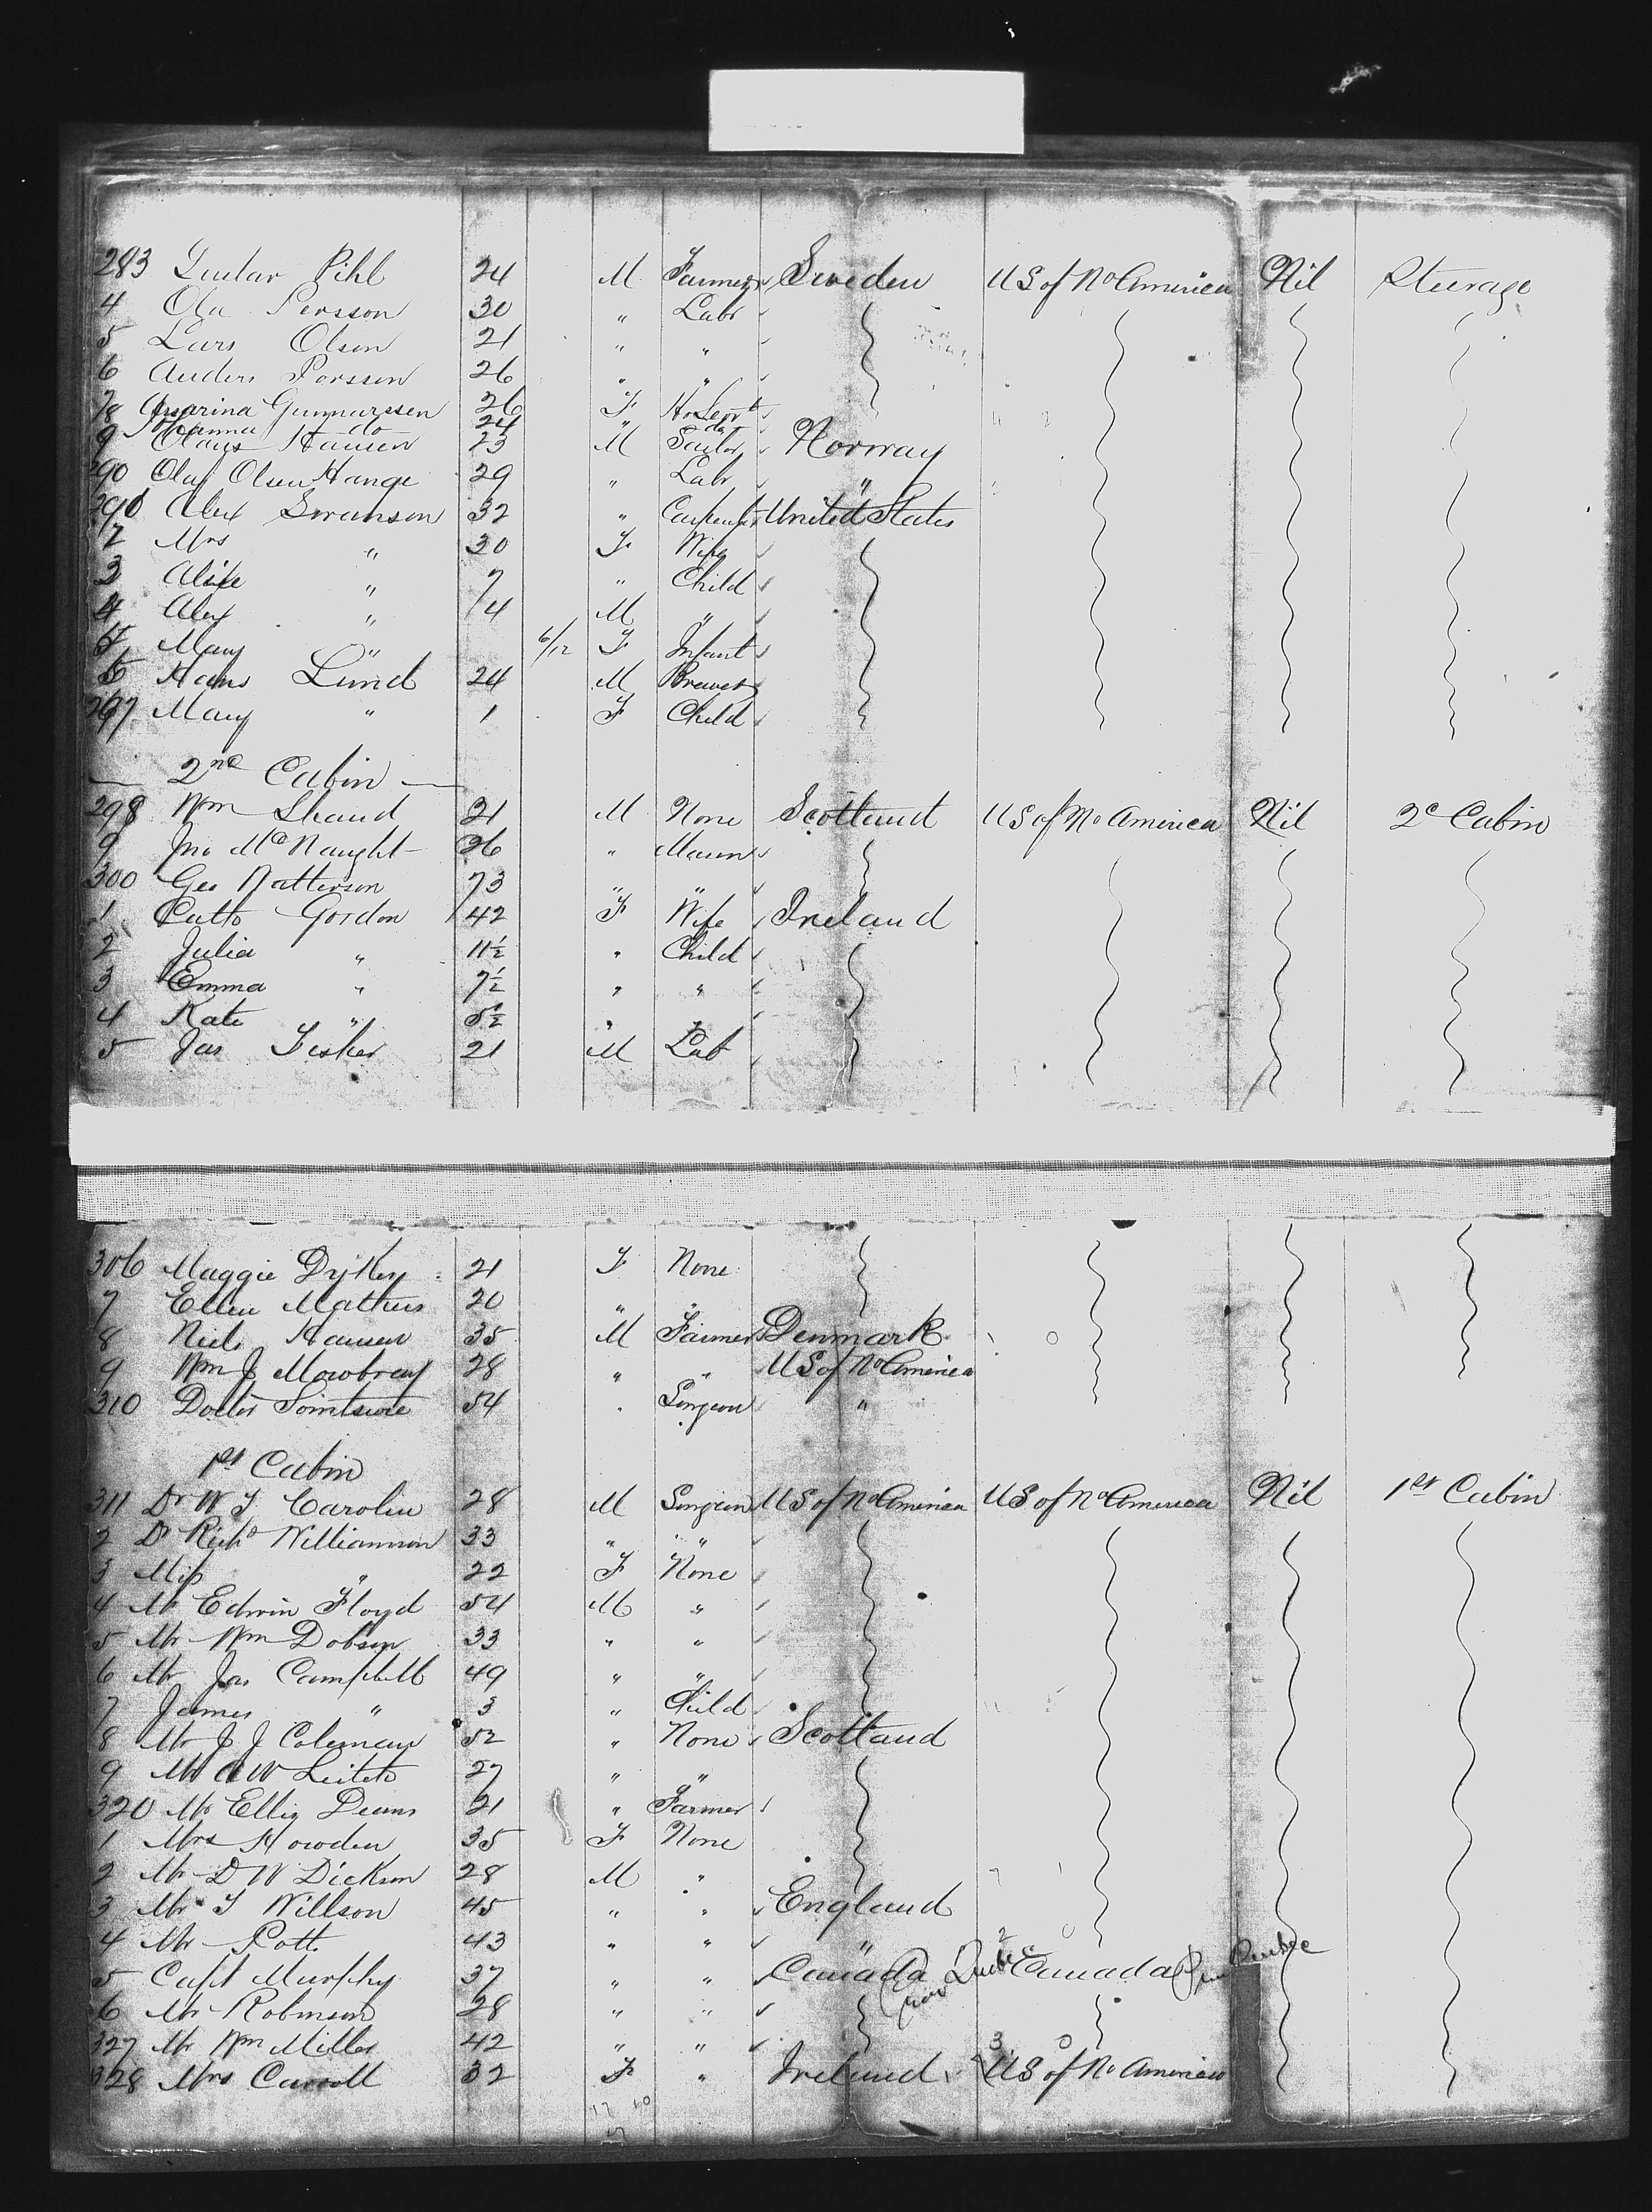 283 Gustav Pihl 24 M Farmer Sweden US of No America Nil Steerage
4 Ola Persson 30 " Labr
5 Lars Olsen 21 " "
6 Anders Persson 26 " "
7 Gunnarssen 26 F H. Servt
8 Johanna do 24 " do
9 Olaus Hansen 23 M Sailor Norway
290 Olaf Olsen Hange 29 " Labr "
291 Alex Swanson 32 " Carpenter United States
2 Mrs " 30 F Wife
3 " 7 " Child
4 Alex " 4 M "
5 Mary " 6/12 F Infant
6 Hans Lund 24 M Brewer
297 Mary " 1 F Child
2nd Cabin
298 Wm Shand 21 M None Scotland US of No America Nil 2c Cabin
9 Jno McNaught 26 " Mason
300 Geo Patterson 73 " "
1 Gordon 42 F Wife Ireland
2 Julia " 11½ " Child
3 Emma " 7½ " "
4 Kate " 5½ " "
5 Jas Fisher 21 M Lab
306 Maggie Dykey 21 F None
7 Ellen Mathers 20 " "
8 Niels Hansen 35 M Farmer Denmark
9 Wm J Mowbray 28 " " US of No America
310 Doctor 54 " Surgeon "
1st Cabin
311 Dr W J Carolin 28 M Surgeon US of No America US of No America Nil 1st Cabin
2 Dr Richd Williamson 33 " "
3 Miss " 22 F None
4 Mr Edwin Floyd 54 M "
5 Mr Wm Dobson 33 " "
6 Mr Jas Campbell 49 " "
7 James " 3 " Child
8 Mr J J Coleman 52 " None Scotland
9 Mr A W Leitch 27 " "
320 Mr Ellis Deans 21 " Farmer
1 Mrs Howden 35 F None
2 Mr D W Dickson 28 M "
3 Mr T Willson 45 " " England
4 Mr Pott 43 " " "
5 Capt Murphy 37 " " Canada near Quebec Canada near Quebec
6 Mr Robinson 28 " "
327 Mr Wm Miller 42 " "
328 Mrs Carroll 32 F " Ireland US of No America